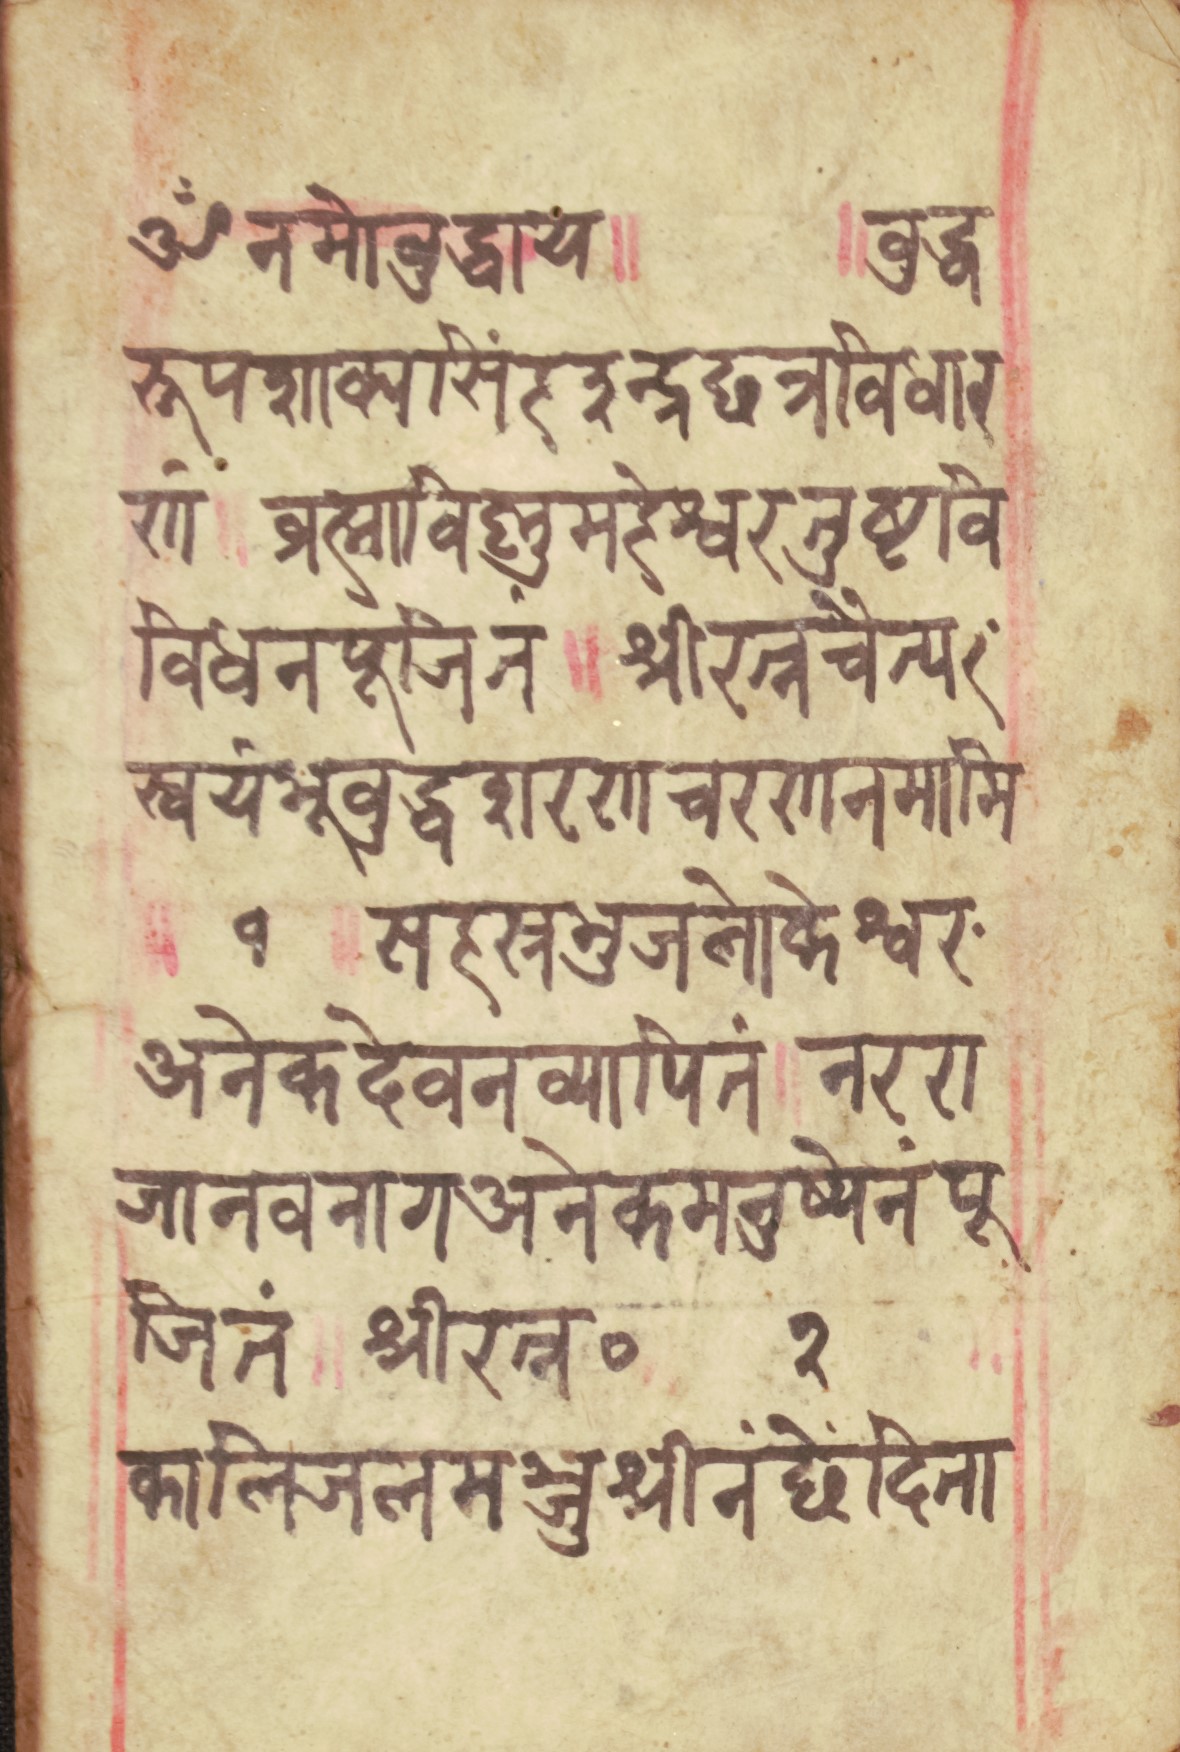 ॐ नमो वुद्धाय ॥ ॥ वुद्ध
रूपशाक्यसिंहइन्द्रछत्रविधार
णं ॥ व्रह्माविष्णुमहेश्वरतुष्टवि
विधनपूजितं ॥ श्रीरत्नचैत्यरं
स्वयंभूवुद्धशरणचरणनमामि
॥ १ ॥ सहस्रभुजलोकेश्वरं
अनेकदेवनव्यापितं ॥ नररा
जानवनागअनेकमनुष्येनंपू
जितं ॥ श्रीरत्न० २ ॥
कालिजलमञ्जुश्रीनंछेंदिता